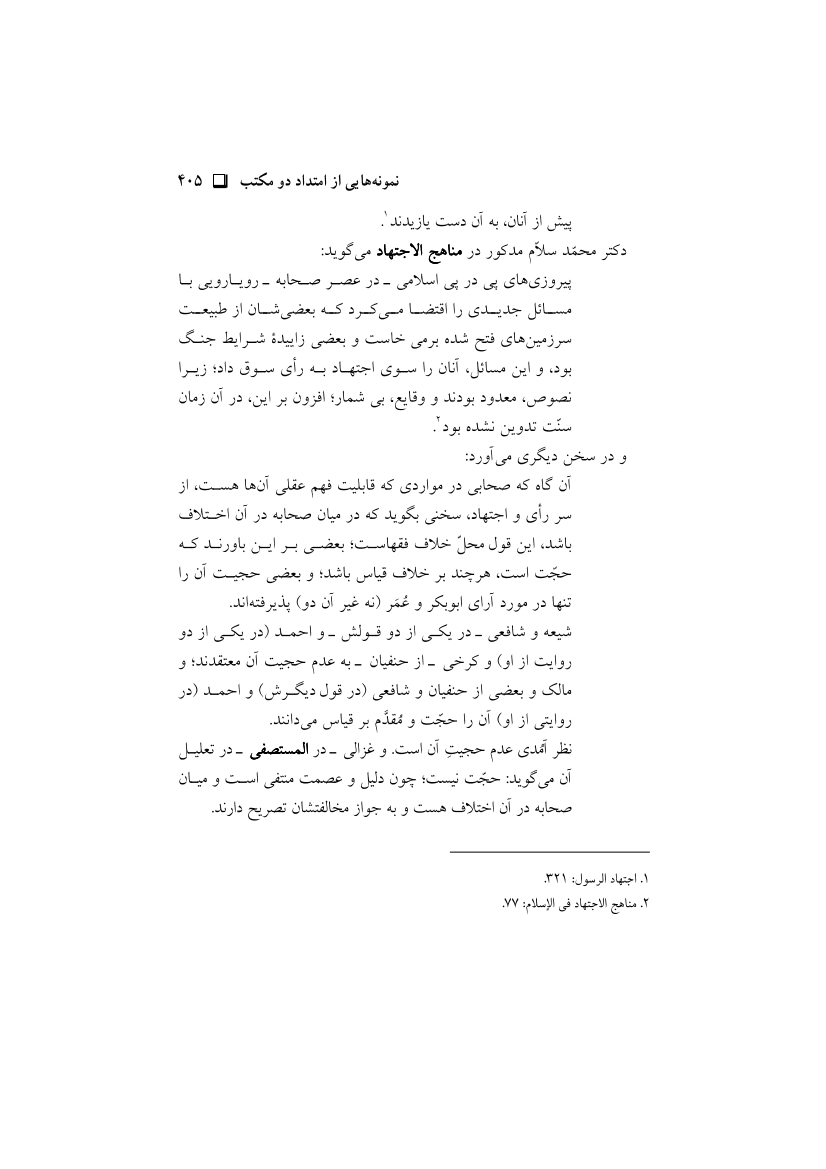 نمونه‌هایی از امتداد دو مکتب ❑ ۴۰۵
پیش از آنان، به آن دست یازیدند۱.
دکتر محمّد سلاّم مدکور در مناهج الاجتهاد می‌گوید:
پیروزی‌های پی در پی اسلامی ـ در عصر صحابه ـ رویارویی با
مسائل جدیدی را اقتضا می‌کرد که بعضی‌شان از طبیعت
سرزمین‌های فتح شده برمی خاست و بعضی زاییدهٔ شرایط جنگ
بود، و این مسائل، آنان را سوی اجتهاد به رأی سوق داد؛ زیرا
نصوص، معدود بودند و وقایع، بی شمار؛ افزون بر این، در آن زمان
سنّت تدوین نشده بود۲.
و در سخن دیگری می‌آورد:
آن گاه که صحابی در مواردی که قابلیت فهم عقلی آن‌ها هست، از
سر رأی و اجتهاد، سخنی بگوید که در میان صحابه در آن اختلاف
باشد، این قول محلّ خلاف فقهاست؛ بعضی بر این باورند که
حجّت است، هرچند بر خلاف قیاس باشد؛ و بعضی حجیت آن را
تنها در مورد آرای ابوبکر و عُمَر (نه غیر آن دو) پذیرفته‌اند.
شیعه و شافعی ـ در یکی از دو قولش ـ و احمد (در یکی از دو
روایت از او) و کرخی ـ از حنفیان ـ به عدم حجیت آن معتقدند؛ و
مالک و بعضی از حنفیان و شافعی (در قول دیگرش) و احمد (در
روایتی از او) آن را حجّت و مُقدَّم بر قیاس می‌دانند.
نظر آمُدی عدم حجیتِ آن است. و غزالی ـ در المستصفی ـ در تعلیل
آن می‌گوید: حجّت نیست؛ چون دلیل و عصمت منتفی است و میان
صحابه در آن اختلاف هست و به جواز مخالفتشان تصریح دارند.
۱. اجتهاد الرسول: ۳۲۱.
۲. مناهج الاجتهاد فی الإسلام: ۷۷.